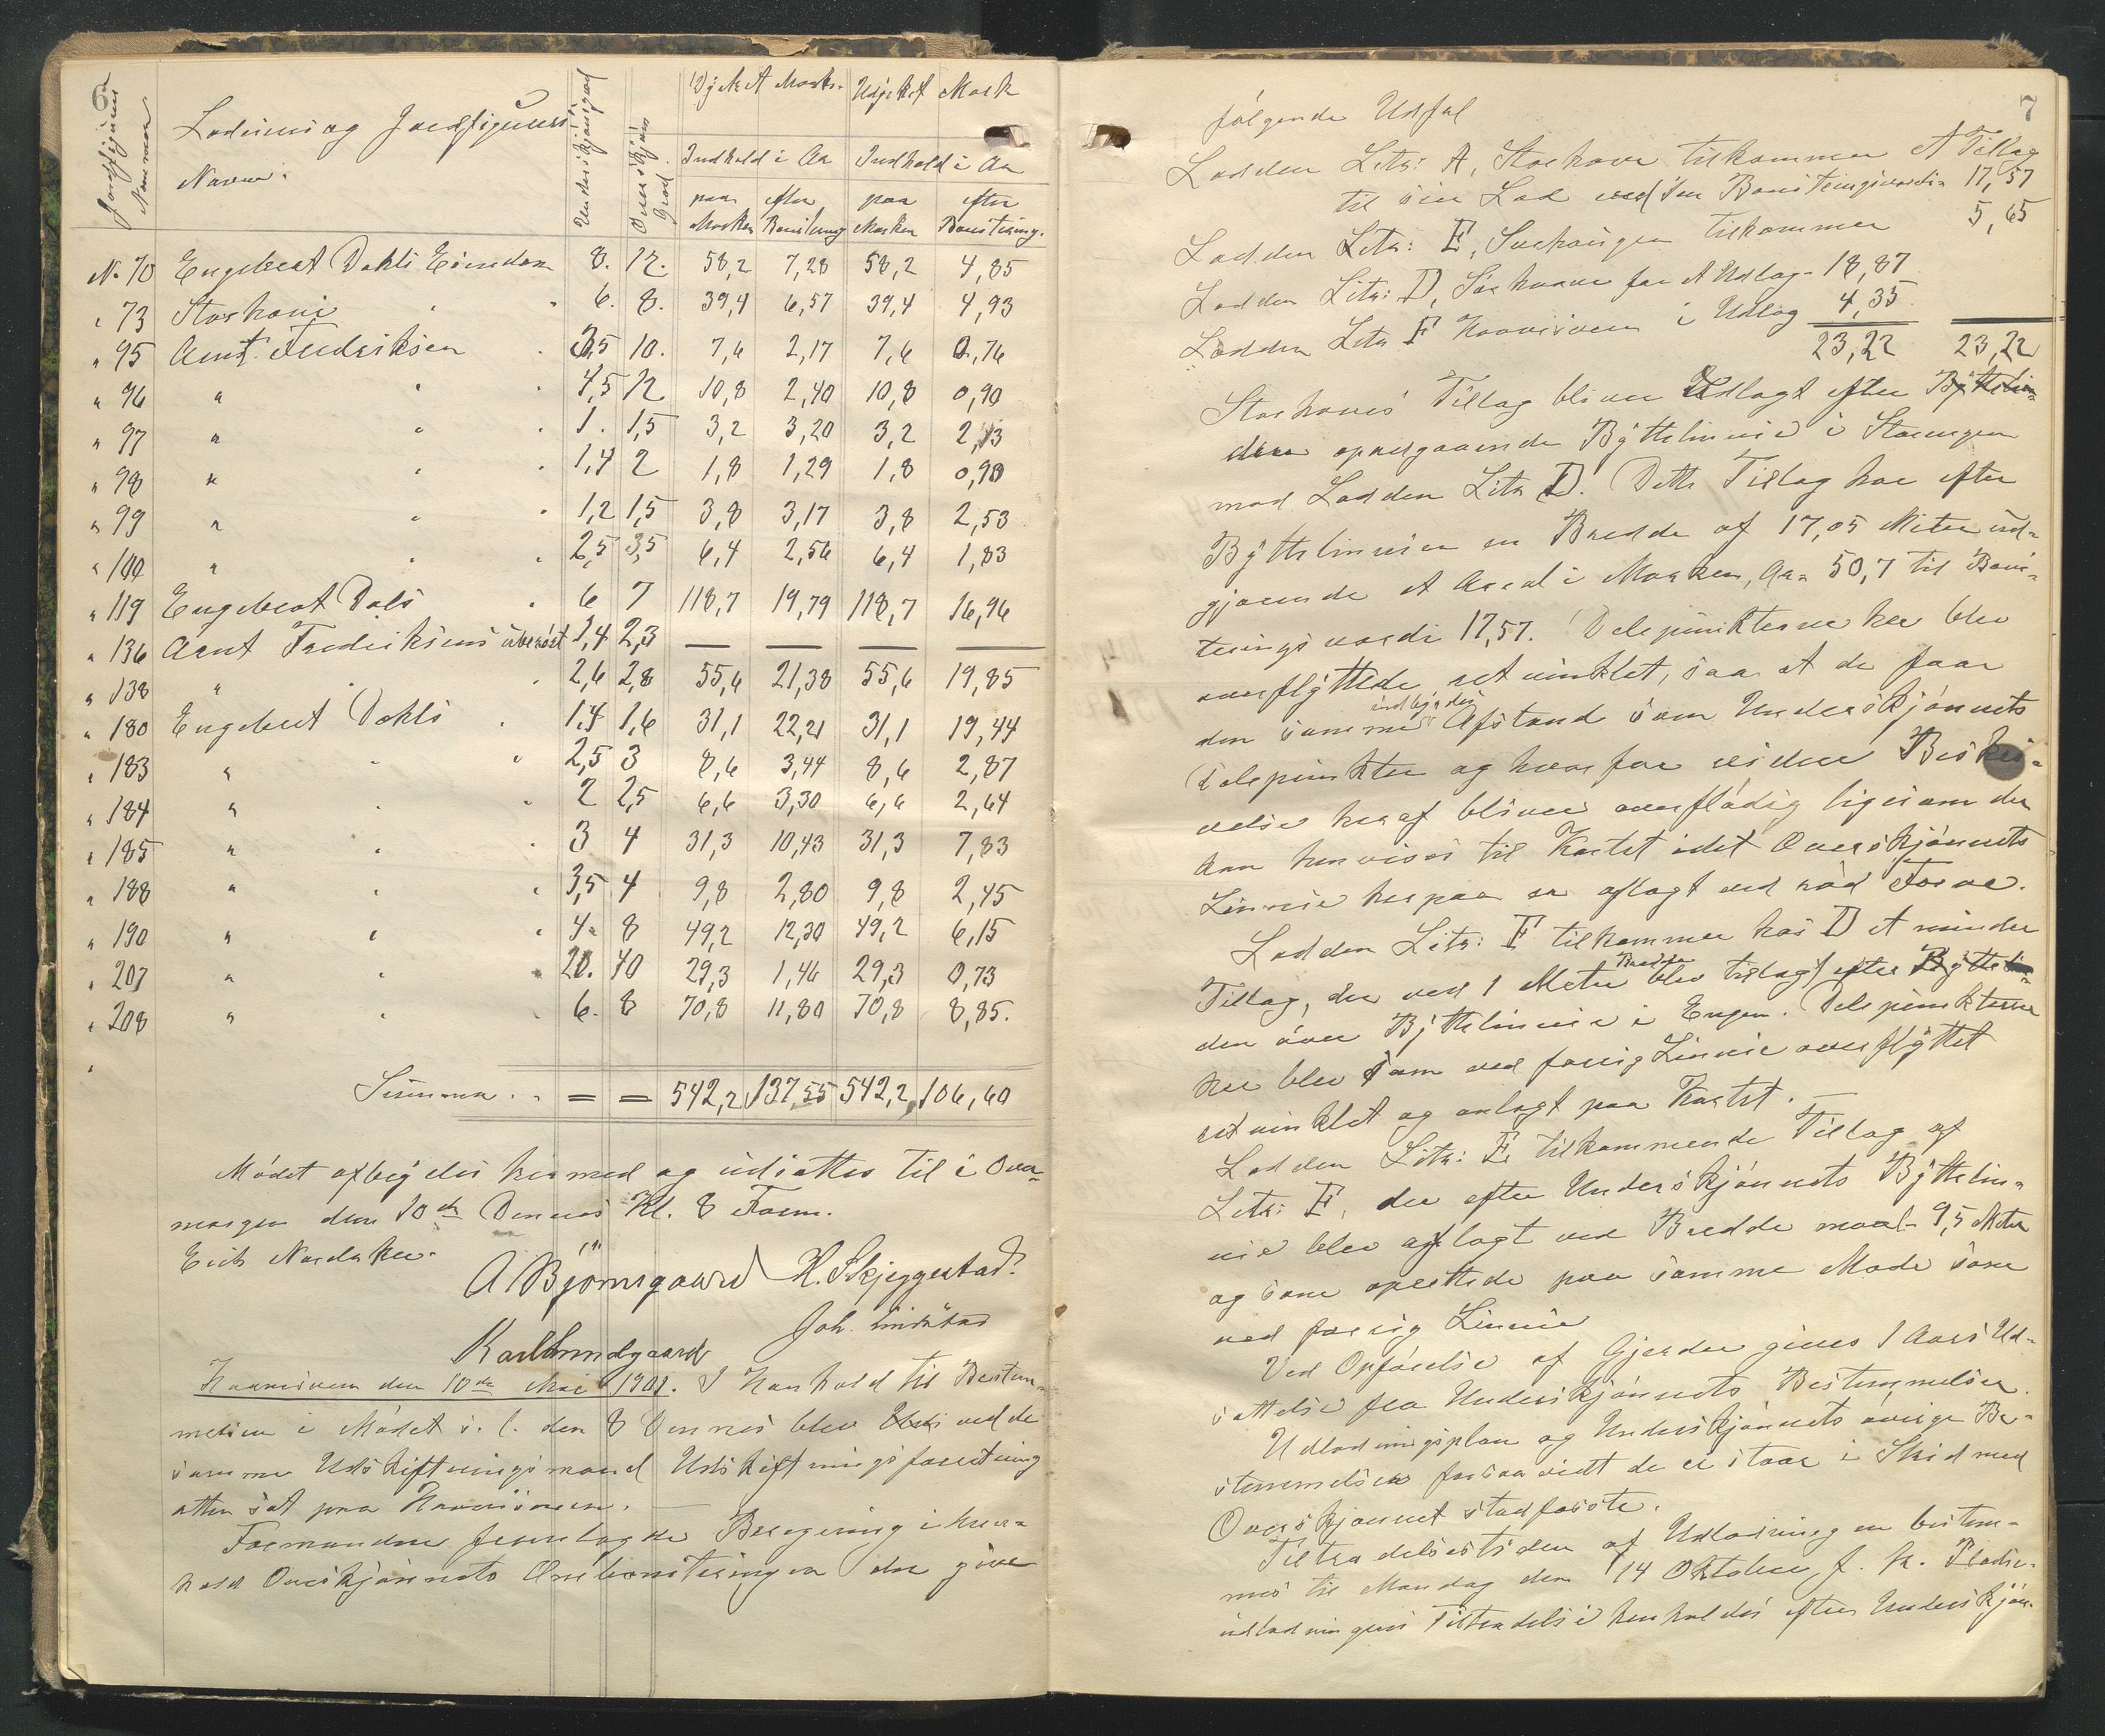 6
Jordfigurens Nummer.
Lodeiers og Jordfigurens
Navne.
Underskjønsgrad
Overskjøns Grad.
Dyrket Mark. Udyrket Mark
Indhold i Aa Indhold i Aa
paa Marken efter Bonitering paa Marken efter Bonitering.
No 70 Engebret Dahls Eiendom 8. 12. 58,2 7,28 58,2 4,85
" 73 Storhove " " 6. 8. 39,4 6,57 39,4 4,93
" 95 Arnt Fredriksen " 3,5 10. 7,6 2,17 7,6 0,76
" 96 " " " 4,5 12 10,8 2,40 10,8 0,90
" 97 " " " 1. 1,5 3,2 3,20 3,2 2,13
" 98 " " " 1,4 2 1,8 1,29 1,8 0,90
" 99 " " " 1,2 1,5 3,8 3,17 3,8 2,53
" 100 " " " 2,5 3,5 6,4 2,56 6,4 1,83
" 119 Engebret Dals " 6 7 118,7 19,79 118,7 16,96
" 136 Arnt Fredriksens uberørt 1,4 2,3 — — — —
" 138 " " " 2,6 2,8 55,6 21,38 55,6 19,85
" 180 Engebret Dahls " 1,4 1,6 31,1 22,21 31,1 19,44
" 183 " " " 2,5 3 8,6 3,44 8,6 2,87
" 184 " " " 2 2,5 6,6 3,30 6,6 2,64
" 185 " " " 3 4 31,3 10,43 31,3 7,83
" 188 " " " 3,5 4 9,8 2,80 9,8 2,45
" 190 " " " 4. 8 49,2 12,30 49,2 6,15
" 207 " " " 20. 40 29,3 1,46 29,3 0,73
" 208 " " " 6. 8 70,8 11,80 70,8 8,85.
Summa . . = = 542,2 137,55 542,2 106,60
Mødet afbrydes hermed og udsættes til i Over-
morgen den 10de Dennes Kl. 8 Form.
Erik Nordaker.
A Bjørnsgaard H. Skjeggestad.
Joh.
Karl Lundgaard
Haavisveen den 10de Mai 1901. I Henhold til Bestem-
melsen i Mødet s. l. den 8 Dennes blev ved de
samme Udskiftningsmænd Udskiftningsforretning
atter sat paa Haavisveen. —
Formanden fremlagde Beregning i Hen-
hold Overskjønnets Ombonitering der give
7
følgende Udfal
Lodden Litr: A, Storhove tilkommer et Tillæg
til sin Lod ved den Boniteringsværdi 17,57
Lodden Litr: E, Sorhaugen tilkommer 5,65
Lodden Litr: D, Sorhove får et Udlæg 18,87
Lodden Litr F Haavisveen i Udlæg 4,35
23,22 23,22
Storhoves Tillæg bliver Udlagt efter Byttelin-
dens opadgaaende Byttelinnie i Storengen
mod Lodden Litr D. Dette Tillæg har efter
Byttelinnien en Bredde af 17,05 Meter ud-
gjørende et Areal i Marken, Aa 50,7 til Boni-
terings værdi 17,57. Delepunkterne her blev
overflyttede ret vinklet, saa at de faar
den samme indbyrdes Afstand som Underskjønnets
Delepunkter og hvorfor videre Beskri-
velse heraf bliver overflødig ligesom der
kan henvises til Kartet idet Overskjønnets
Linnie herpaa er aflagt ved rød Farve.
Lodden Litr: F tilkommer hos D et mindre
Tillæg, der ved 1 Meter Bredde blev tillagt efter Byttelin-
den over Byttelinnie i Engen. Delepunkterne
her blev som ved forrig Linnie overflyttet
ret vinklet og anlagt paa Kartet. —
Lodden Litr: E tilkommende Tillæg af
Litr: F, der efter Underskjønnets Byttelin-
nie blev aflagt ved Bredde maal 9,5 Meter
og som oprettede paa samme Maade som
ved forrig Linnie
Ved Opførelse af Gjerder gives 1 Aars Ud-
sættelse fra Underskjønnets Bestemmelser.
Udlodningsplan og Underskjønnets øvrige Be-
stemmelser forsaavidt de ei staar i Strid med
Overskjønnet stadfæste.
Tiltrædelsestiden af Udlodningen bestem-
mes til Mandag den 14 Oktober f. k.
udlodningens Tiltrædelse henholdes efter Underskjøn-